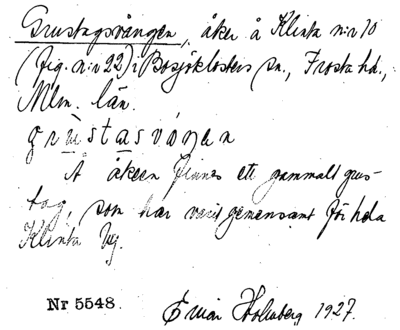 Grustagsvången, åker å Klinta n:r 10
(fig. n:r 22) i Bosjöklosters sn., Frosta hd.,
Mlm. län.
grùstasváŋen
Å åkern finnes ett gammalt grus-
tag, som har varit gemensamt för hela
Klinta by.
Nr 5548. Einar Holmberg 1927.